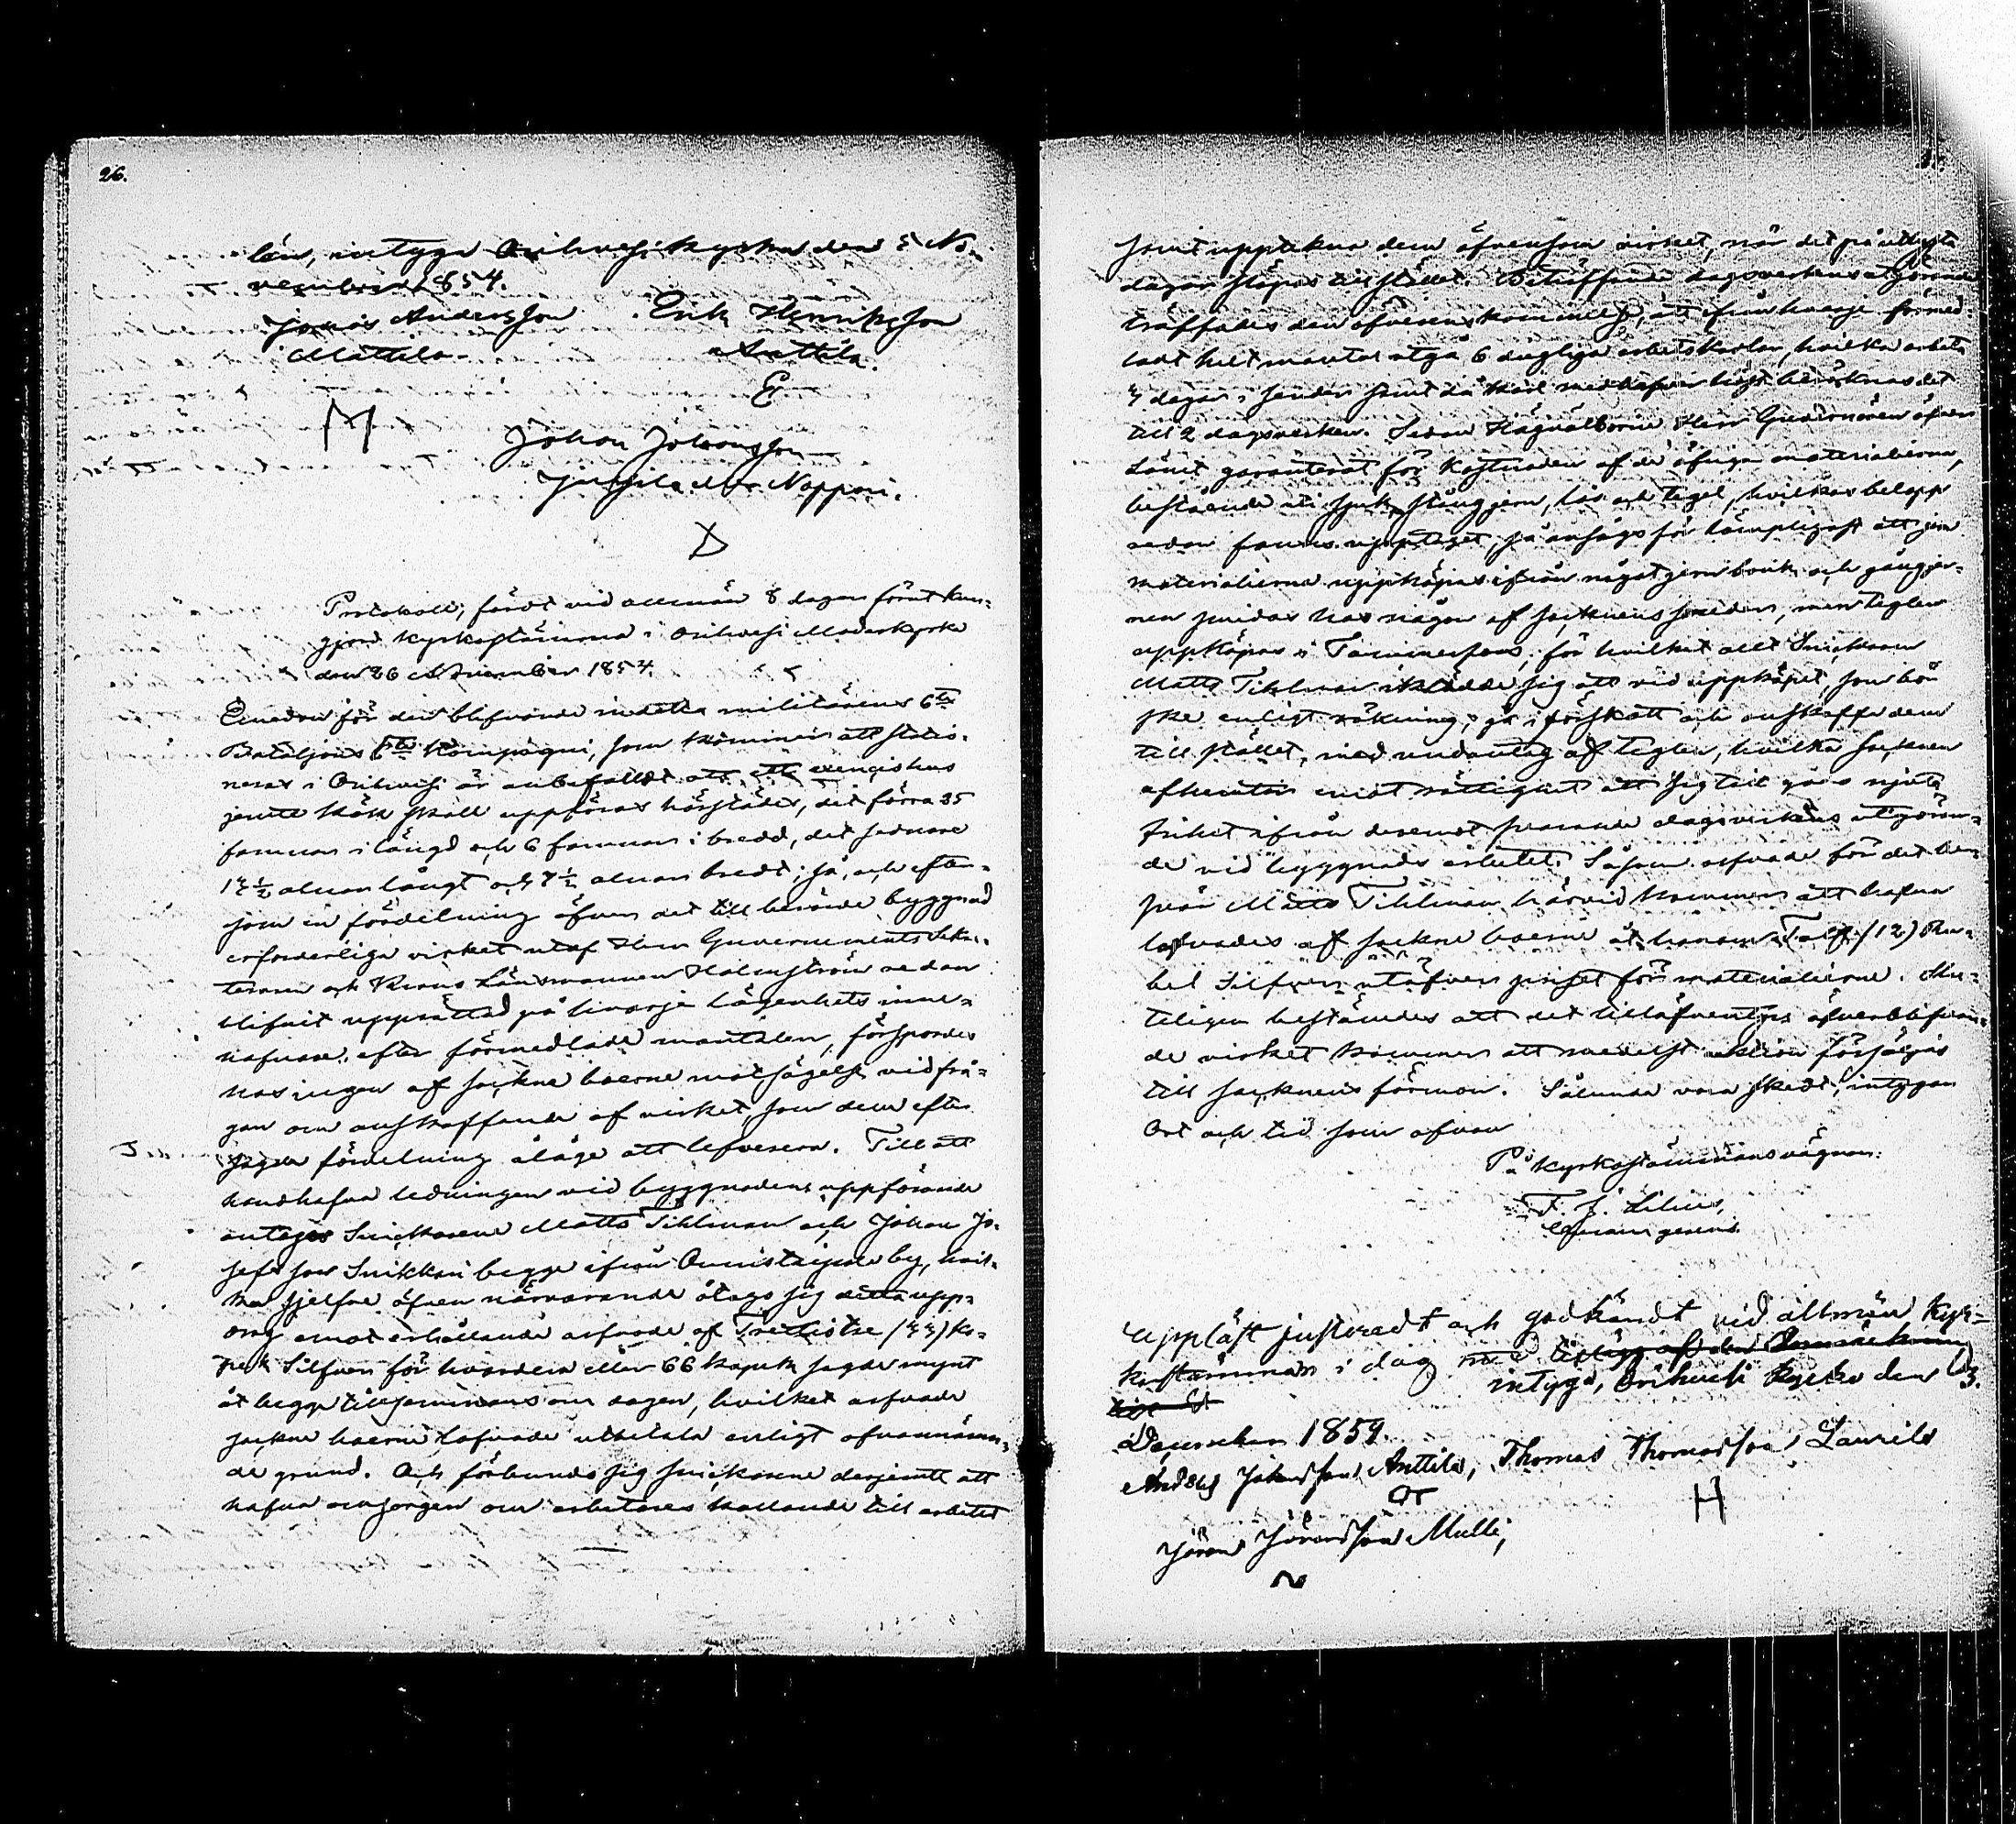 26.
len, intyga Orihvesi kyrka den 5 No-
vember 1854.
Jonas Andersson Erik Henriksson
Mattila Anttila.
M E
Johan Johansson
Jussila Nappari.
D
Protokoll, fördt vid allmän 8 dagar förut kun-
gjord kyrkostämma i Orihvesi Moderkyrka
den 26 November 1854.
Emedan för den blifvande indelta militärens 6te
Bataljons 6te Kompagni, som kommer att statio-
neras i Orihvesi är anbefalldt att ett exercishus
jemte kök skall uppföras härstädes, det förra 35
famnar i längd och 6 famnar i bredd, det sednare
15½ alnar långt och 7½ alnar bredt; så, och efter-
som en fördelning öfver det till berörde byggnad
erforderliga virket utaf Herr Guvernements Sekre-
teraren och Krono Länsmannen Holmström redan
blifvit upprättad på hvarje lägenhets inne-
hafvare, efter förmedlade mantalen, förspordes
hos ingen af sockne boerne motsägelse vid frå-
gan om anskaffande af virket, som dem efter
sagde fördelning ålåge att lefverera. Till att
handhafva ledningen vid byggnadens uppförande
antogos Snickarene Matts Tihlman och Johan Jo-
sefsson Snikkari begge ifrån Onnistaipale by, hvil-
ka sjelfve äfven närvarande åtogo sig detta upp-
drag emot erhållande arfvode af Trettiotre (33) ko-
pek Silfver för hvardera eller 66 kopek sagde mynt
åt begge tillsammans om dagen, hvilket arfvode
sockne boerne lofvade utbetala enligt ofvannämn-
de grund. Och förbundo sig snickarene derjemte att
hafva omsorgen om arbetares kallande till arbetet
samt uppteckna dem äfvensom virket, när det på utlysta
dagar släpas till stället. Beträffande dagsverkens utgörande
träffades den öfverenskommelse, att ifrån hvarje förmed-
ladt helt mantal utgå 6 dugliga arbetskarlar, hvilka arbeta
3 dagar i sender samt då karl medhafver häst beräknas det
till 2 dagsverken. Sedan Högvälborne Herr Guvernören äfven
lånt garanterat för kostnaden af de öfriga materialierna,
bestående uti spik, stångjern, lås och tegel, hvilkas belopp
redan fanns upptaget, så ansågs för lämpligast att jern
materialierna uppköpas ifrån något jernbruk och gångjer-
nen smidas hos någon af socknens smeder, men teglen
uppköpas i Tammerfors, för hvilket allt Snickaren
Matts Tihlman iklädde sig att vid uppköpet, som bör
ske enligt räkning, gå i förskott och anskaffa dem
till stället, med undantag af teglen, hvilka socknen
afhemtar emot rättighet att sig till godo njuta
frihet ifrån deremot svarande dagsverkens utgöran-
de vid byggnads arbetet. Såsom arfvode för det be-
svär Matts Tihlman härvid kommer att hafva
lofvades af sockne boerne åt honom Tolf (12) Ru-
bel Silfver utöfver priset för materialierne. Slu-
teligen bestämdes att det tilläfventyrs öfverblifvan-
de virket kommer att medelst auktion försäljas
till socknens förmon. Sålunda vara skedt, intygar
Ort och tid som ofvan
På kyrkostämmans vägnar:
F. J. Lilius,
Uppläst justeradt och godkändt vid allmän Kyr-
kostämman i dag
intyga, Orihvesi Kyrka den 3.
December 1854.
Anders Johansson Anttila, Thomas Thomasson Laurila
H
Jöran Jöransson Mulli,